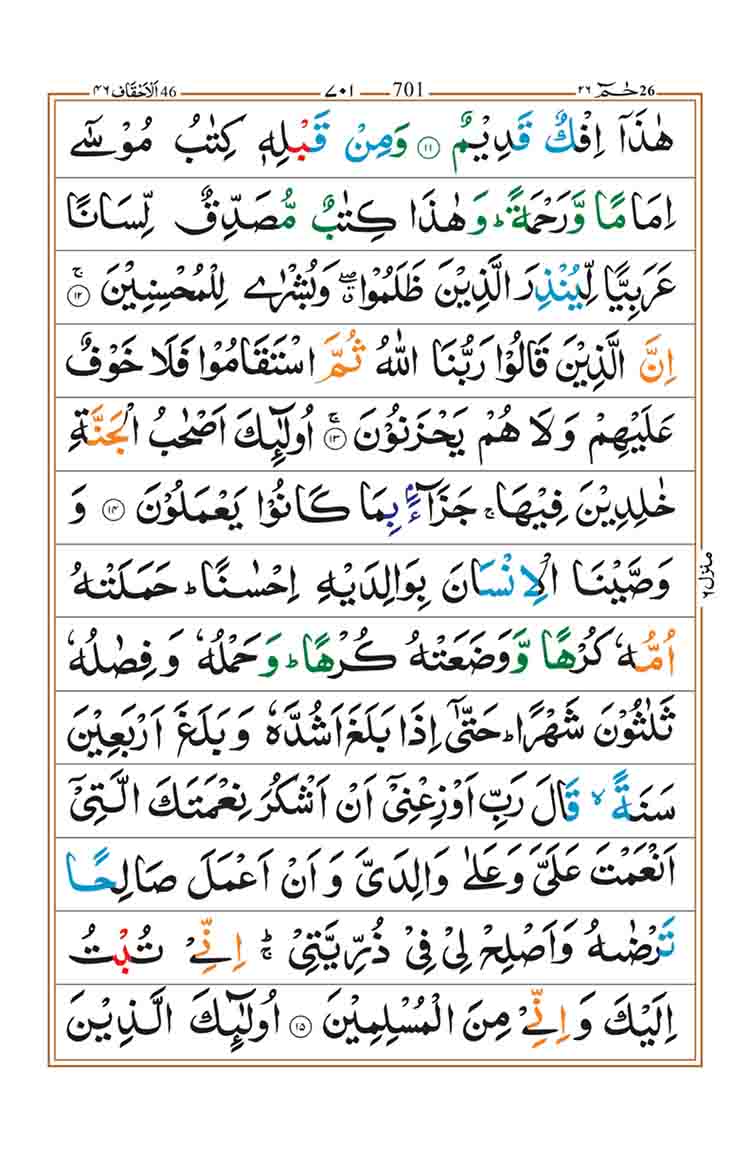 46 اَلْاَحْقَاف ٤٦ 701 ٧٠١ 26 حٰمٓ ٢٦
هٰذَاۤ اِفْكٌ قَدِیْمٌ ۝۱۱ وَمِنْ قَبْلِهٖ كِتٰبُ مُوْسٰۤی
اِمَامًا وَّرَحْمَةً ؕ وَهٰذَا كِتٰبٌ مُّصَدِّقٌ لِّسَانًا
عَرَبِیًّا لِّیُنْذِرَ الَّذِیْنَ ظَلَمُوْا ۖ ق وَبُشْرٰی لِلْمُحْسِنِیْنَ ۝۱۲ ۚ
اِنَّ الَّذِیْنَ قَالُوْا رَبُّنَا اللّٰهُ ثُمَّ اسْتَقَامُوْا فَلَا خَوْفٌ
عَلَیْهِمْ وَلَا هُمْ یَحْزَنُوْنَ ۝۱۳ ۚ اُولٰٓىِٕكَ اَصْحٰبُ الْجَنَّةِ
خٰلِدِیْنَ فِیْهَا ۚ جَزَآءًۢ بِمَا كَانُوْا یَعْمَلُوْنَ ۝۱۴ وَ
وَصَّیْنَا الْاِنْسَانَ بِوَالِدَیْهِ اِحْسٰنًا ؕ حَمَلَتْهُ
اُمُّهٗ كُرْهًا وَّوَضَعَتْهُ كُرْهًا ؕ وَحَمْلُهٗ وَفِصٰلُهٗ
ثَلٰثُوْنَ شَهْرًا ؕ حَتّٰۤی اِذَا بَلَغَ اَشُدَّهٗ وَبَلَغَ اَرْبَعِیْنَ
سَنَةً ۙ قَالَ رَبِّ اَوْزِعْنِیْۤ اَنْ اَشْكُرَ نِعْمَتَكَ الَّتِیْۤ
اَنْعَمْتَ عَلَیَّ وَعَلٰی وَالِدَیَّ وَاَنْ اَعْمَلَ صَالِحًا
تَرْضٰىهُ وَاَصْلِحْ لِیْ فِیْ ذُرِّیَّتِیْ ۚؕ اِنِّیْ تُبْتُ
اِلَیْكَ وَاِنِّیْ مِنَ الْمُسْلِمِیْنَ ۝۱۵ اُولٰٓىِٕكَ الَّذِیْنَ
منزل ٦